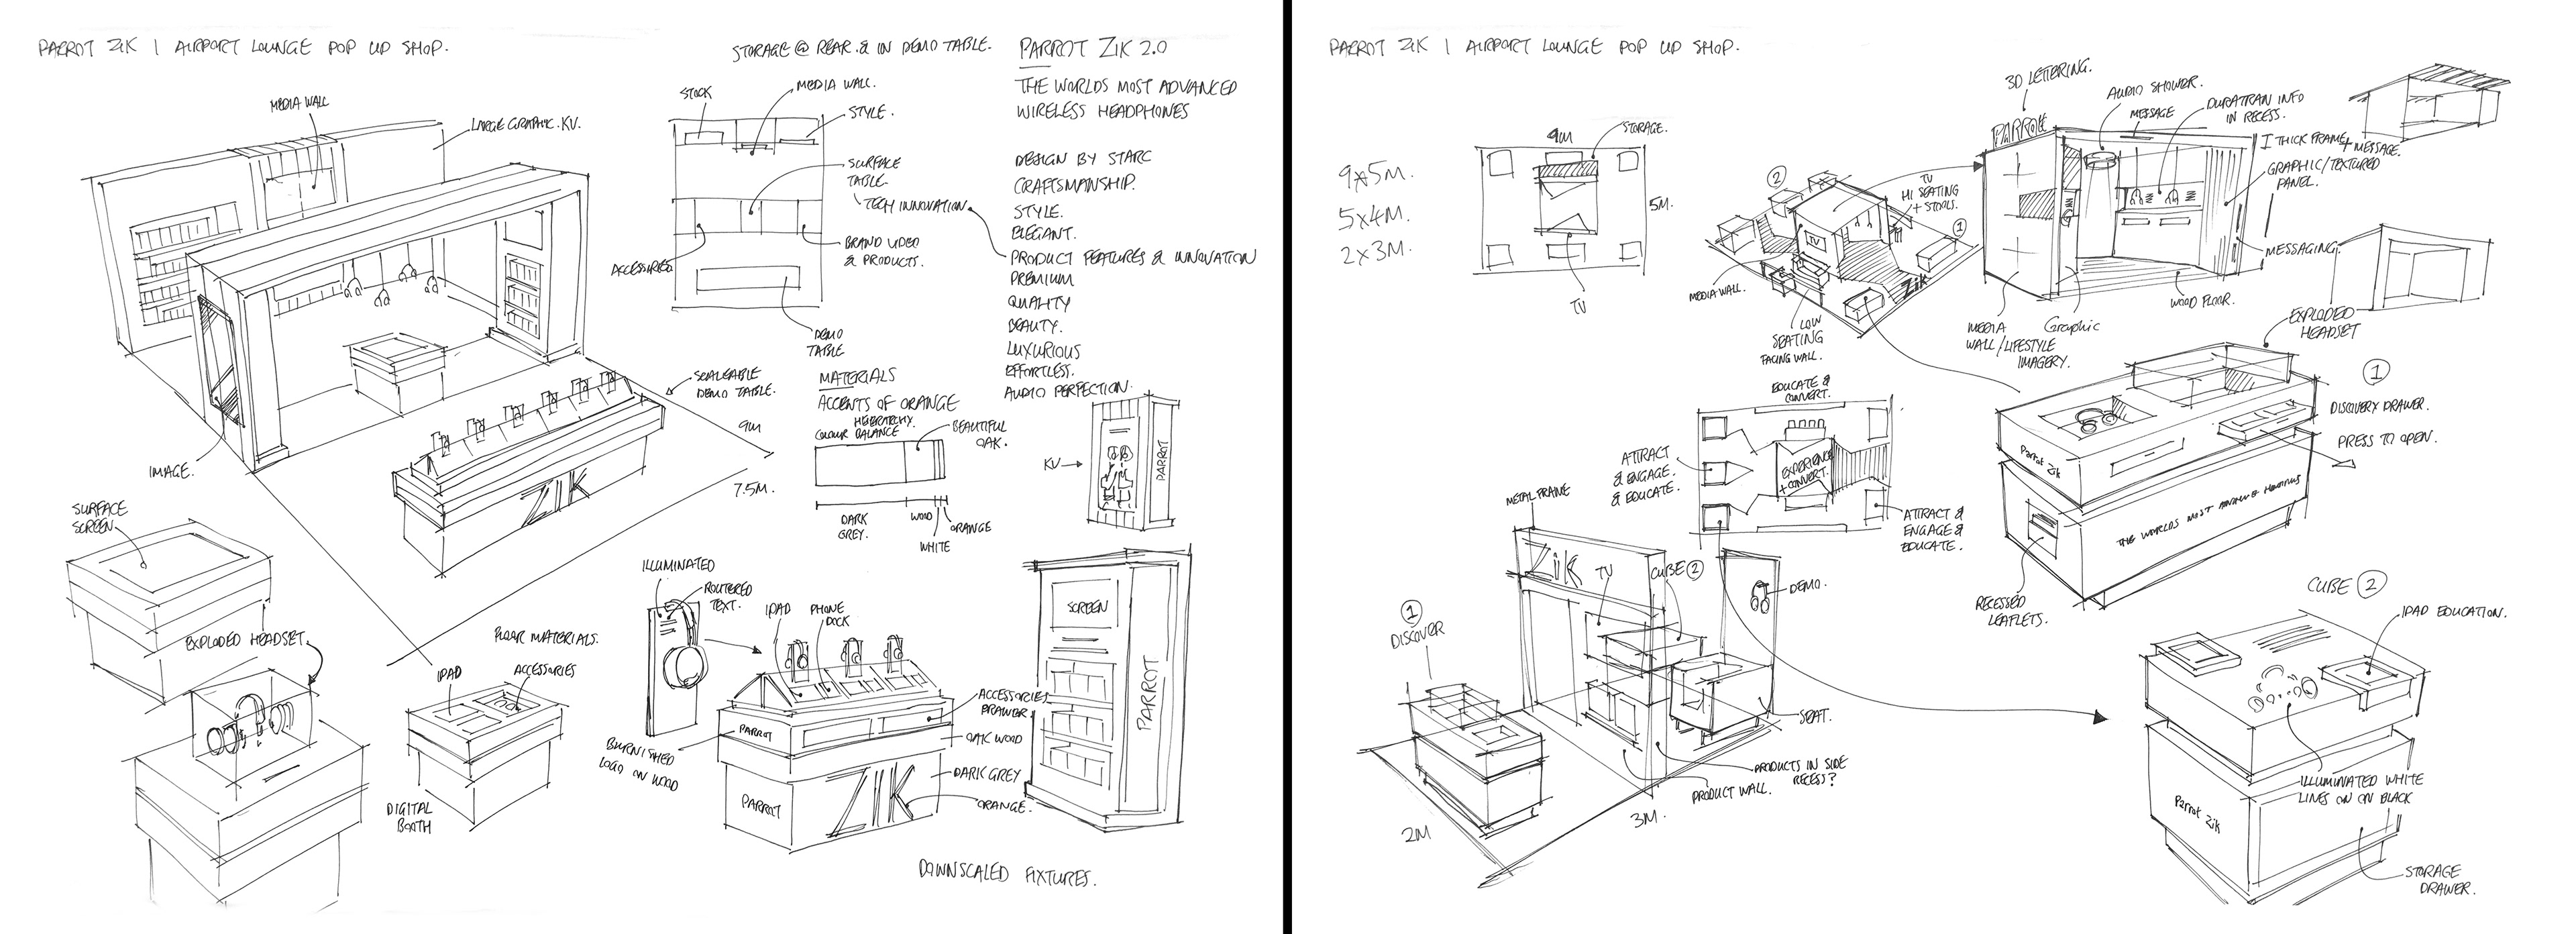 PARROT ZIK | AIRPORT LOUNGE POP UP SHOP.
STORAGE @ REAR & IN DEMO TABLE.
PARROT ZIK 2.0
THE WORLDS MOST ADVANCED
WIRELESS HEADPHONES
DESIGN BY STARC
CRAFTSMANSHIP.
STYLE.
ELEGANT.
PRODUCT FEATURES & INNOVATION
PREMIUM
QUALITY
BEAUTY.
LUXURIOUS
EFFORTLESS.
AUDIO PERFECTION.
MEDIA WALL
LARGE GRAPHIC. KV.
STOCK
MEDIA WALL.
STYLE.
SURFACE
TABLE.
TECH INNOVATION
ACCESSORIES
BRAND VIDEO
& PRODUCTS.
DEMO
TABLE
SCALEABLE
DEMO TABLE.
9M
7.5M.
IMAGE.
ZIK
MATERIALS
ACCENTS OF ORANGE
HEIRARCHY.
COLOUR BALANCE
BEAUTIFUL
OAK.
DARK
GREY.
WOOD
ORANGE
WHITE
KV
PARROT
SURFACE
SCREEN
EXPLODED HEADSET.
FLOOR MATERIALS.
IPAD
ACCESSORIES
DIGITAL
BOOTH
ILLUMINATED
ROUTERED
TEXT.
IPAD
PHONE
DOCK
ACCESSORIES
DRAWER.
OAK WOOD
DARK GREY
ORANGE.
BURNISHED
LOGO ON WOOD
PARROT
PARROT
ZIK
SCREEN
PARROT
DOWNSCALED FIXTURES.
PARROT ZIK | AIRPORT LOUNGE POP UP SHOP.
9x5M.
5x4M.
2x3M.
9M
STORAGE.
5M.
TV
2
TV
HI SEATING
+ STOOLS.
1
TV
MEDIA WALL.
Zik
LOW
SEATING
FACING WALL.
3D LETTERING.
PARROT
AUDIO SHOWER.
MESSAGE
DURATRAN INFO
IN RECESS.
THICK FRAME
+ MESSAGE.
GRAPHIC/TEXTURED
PANEL.
MESSAGING.
WOOD FLOOR.
MEDIA
WALL/LIFESTYLE
IMAGERY.
Graphic
EXPLODED
HEADSET
1
DISCOVERY DRAWER.
PRESS TO OPEN.
Parrot Zik
RECESSED
LEAFLETS.
EDUCATE &
CONVERT.
ATTRACT
& ENGAGE
& EDUCATE.
EXPERIENCE
+ CONVERT.
ATTRACT &
ENGAGE &
EDUCATE.
METAL FRAME
Zik
TV
CUBE 2
DEMO.
1
DISCOVER
SEAT.
PRODUCTS IN SIDE
RECESS?
PRODUCT WALL.
2M
3M.
CUBE 2
IPAD EDUCATION.
ILLUMINATED WHITE
LINES ON ON BLACK
Parrot Zik
STORAGE
DRAWER.